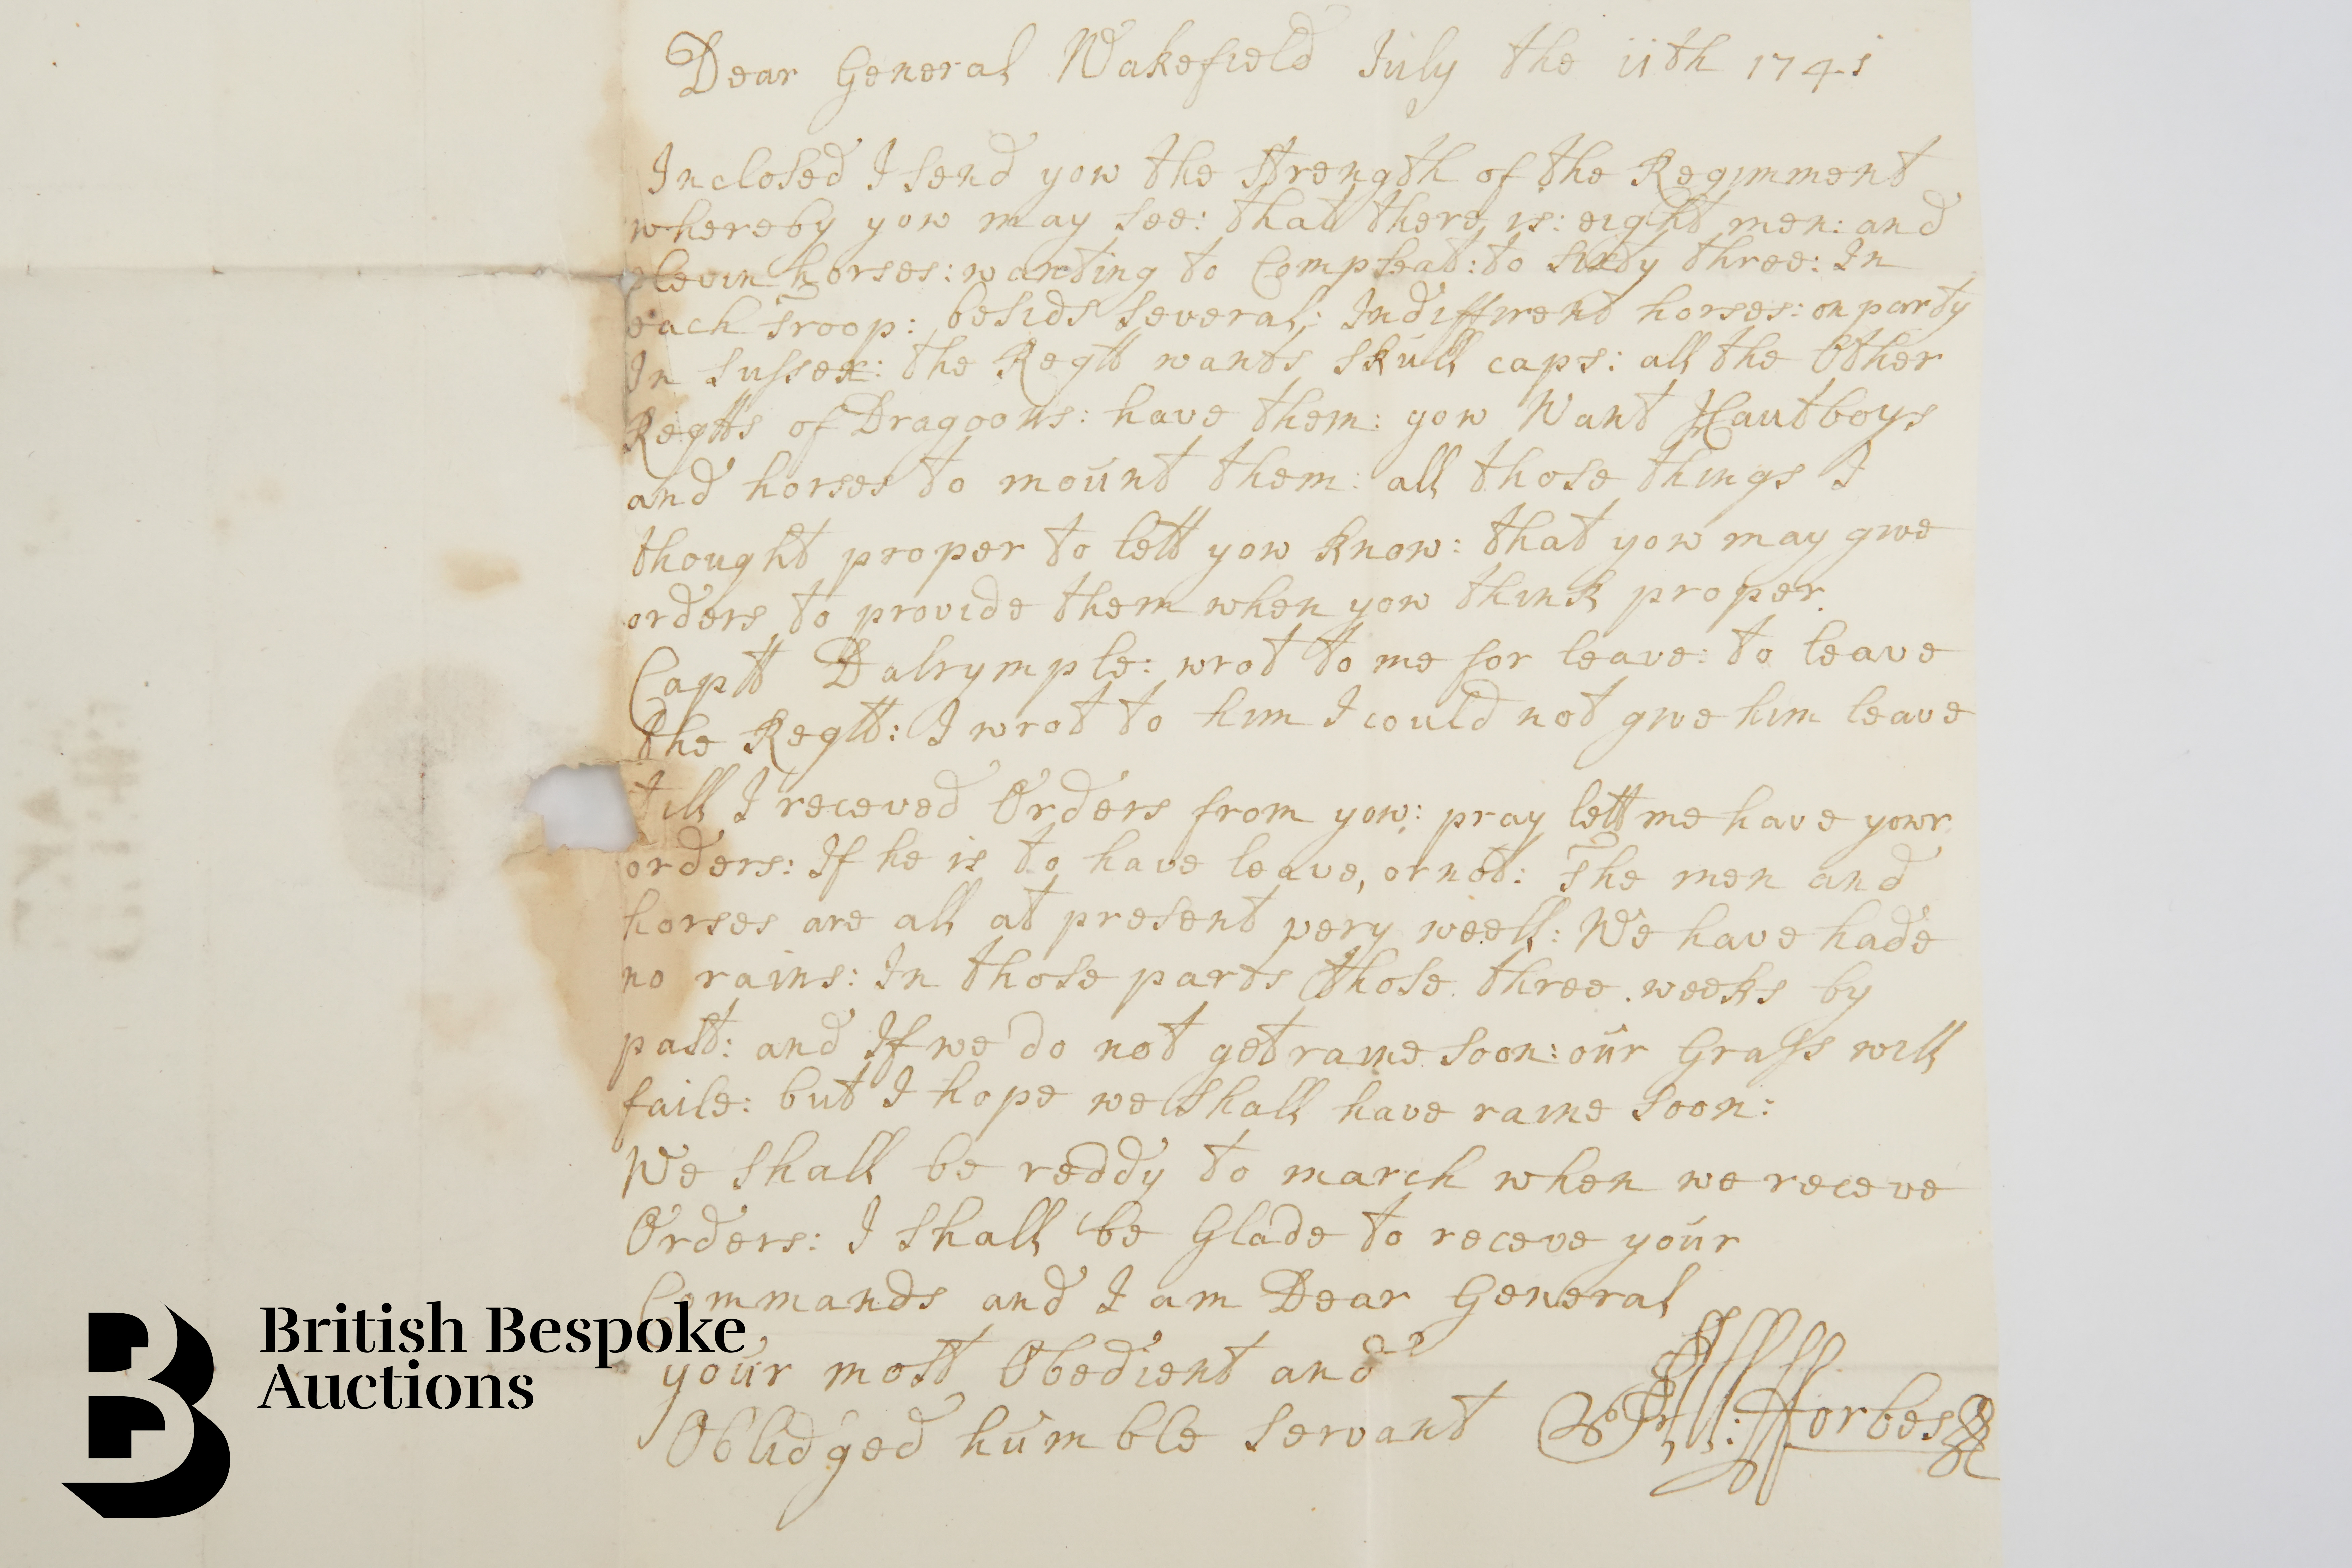 Dear General Wakefield July the 11th 1741
Inclosed I send yow the strength of the Regimment
whereby yow may see: that there is: eight men: and
elevin horses: wanting to Compleat: to sixty three: In
each Troop: besids several: Indiffirent horses: on party
In Sussex: the Regtt wants skull caps: all the Other
Regtts of Dragoons: have them: yow Want Hautboys
and horses to mount them: all those things I
thought proper to lett yow know: that yow may give
orders to provide them when yow think proper.
Captt Dalrymple: wrot to me for leave: to leave
the Regtt: I wrot to him I could not give him leave
till I receved Orders from yow: pray lett me have yowr
orders: If he is to have leave, or not: The men and
horses are all at present very weell: We have hade
no rains: In those parts those three weeks by
past: and If we do not get raine soon: our Grass will
faile: but I hope we shall have raine soon:
We shall be reddy to march when we receve
Orders: I shall be Glade to receve your
Commands and I am Dear General
your most Obedient and
Oblidged humble servant : fforbes
British Bespoke
Auctions